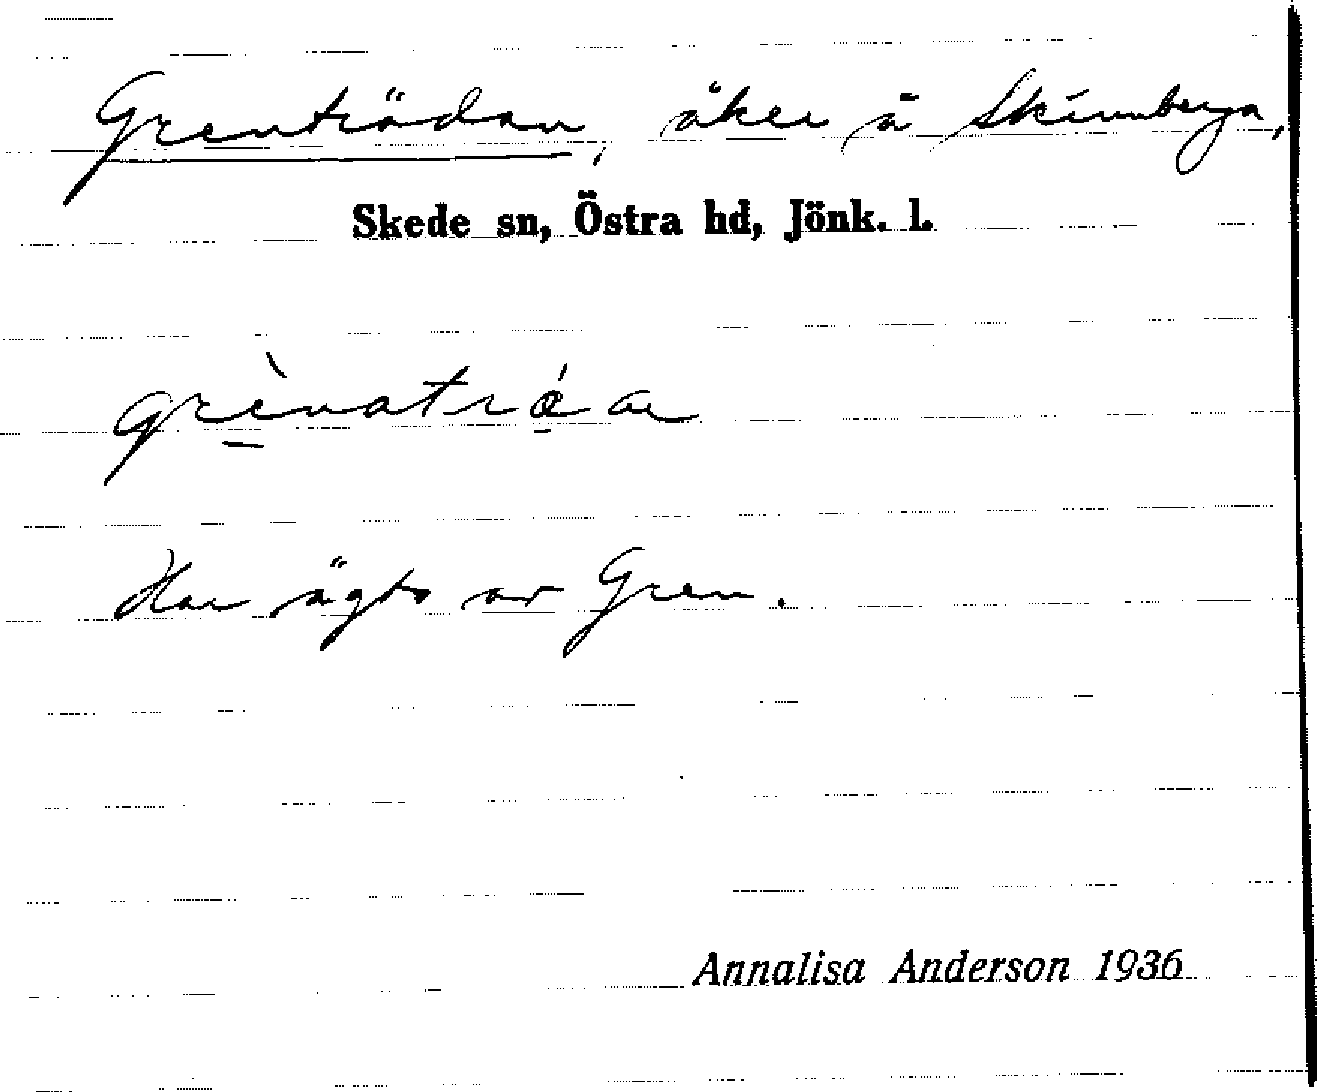 Grenträdan, åker å Skinnberga,
Skede sn, Östra hd, Jönk. l.
Har ägts av Gren.
Annalisa Anderson 1936